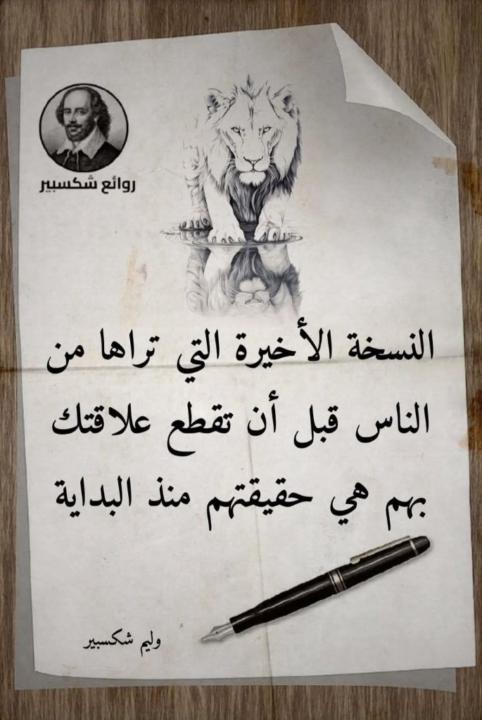 روائع شكسبير
النسخة الأخيرة التي تراها من
الناس قبل أن تقطع علاقتك
بهم هي حقيقتهم منذ البداية
وليم شكسبير